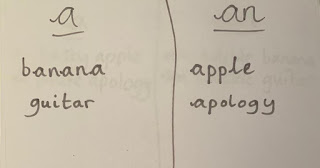 a
banana
guitar
an
apple
apology